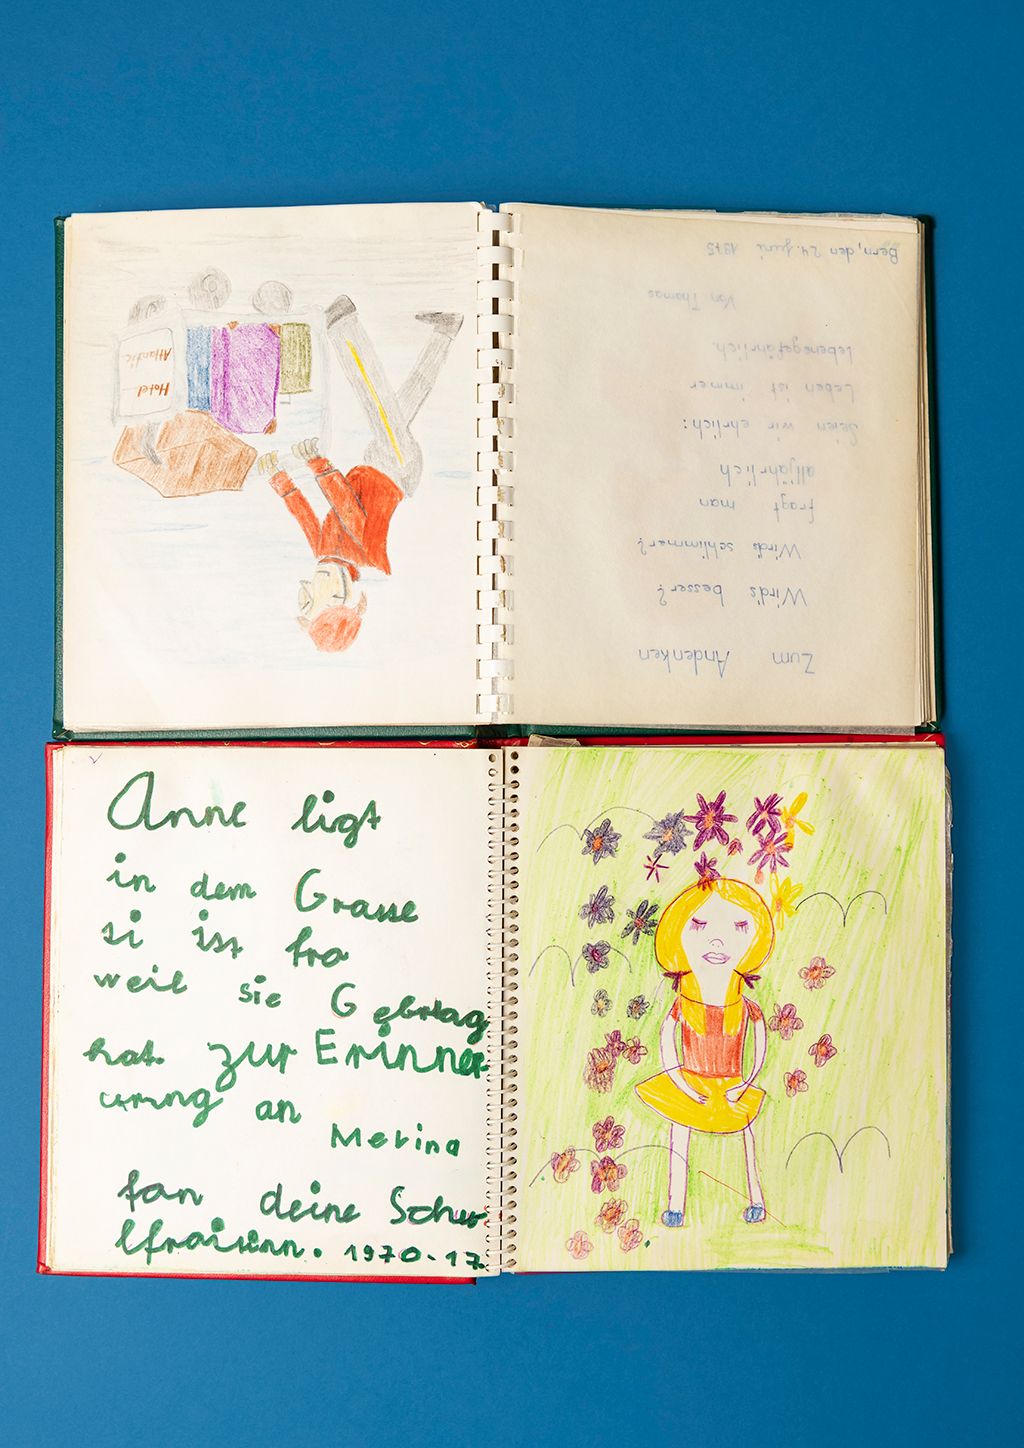 Zum Andenken
Wird's besser?
Wird's schlimmer?
fragt man
alljährlich
Seien wir ehrlich:
Leben ist immer
Lebensgefährlich.
Von Thomas
Bern, den 24. Juni 1975
Hotel
Atlantic
Anne ligt
in dem Grasse
si ist fro
weil sie Gebrtag
hat. zur Erinner-
urung an
Merina
fon deine Schu-
lfraisinn. 1970-17.